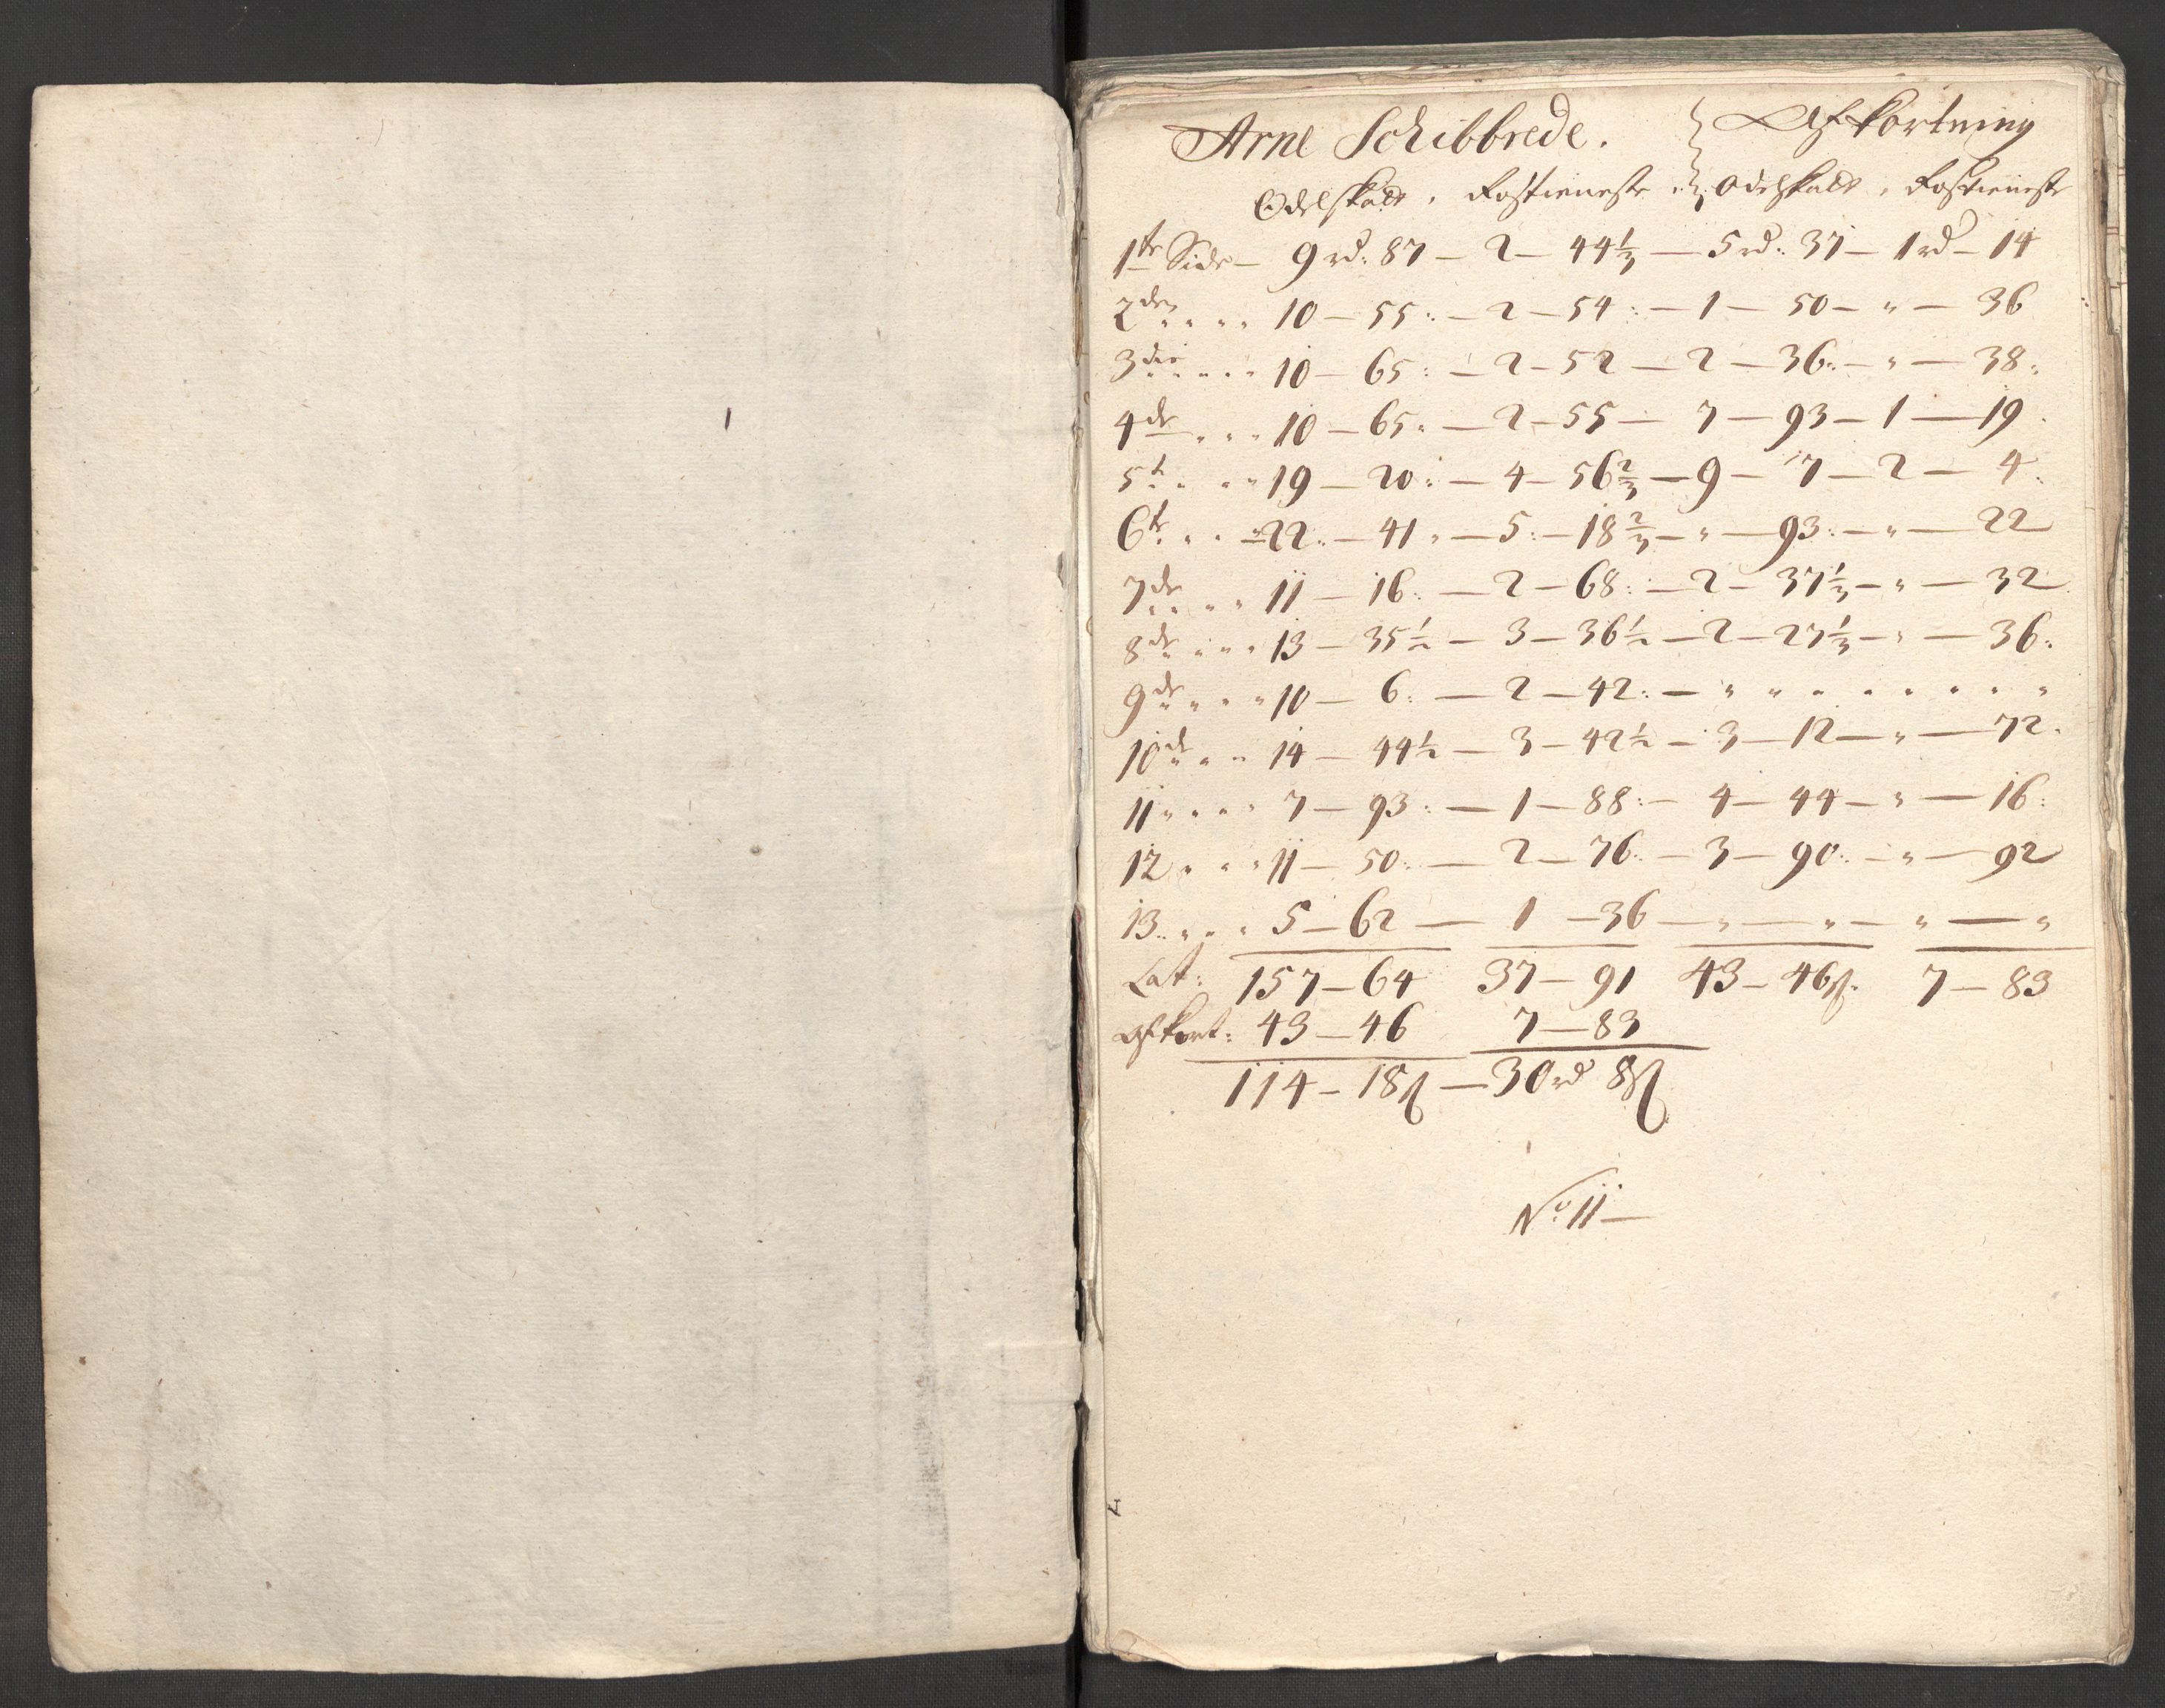 Arne Schibbrede. } Afkortning
Odelskatt. Rostieneste. } Odelskatt. Rostieneste
1te Side — 9 rd. 87 — 2 — 44 1/3 — 5 rd. 37 — 1 rd — 14
2den .... 10 — 55: — 2 — 54: — 1 — 50 — " — 36
3die .... 10 — 65: — 2 — 52 — 2 — 36: — " — 38:
4de ... 10 — 65: — 2 — 55 — 7 — 93 — 1 — 19.
5t. ... 19 — 20: — 4 — 56 2/3 — 9 — 7 — 2 — 4.
6t. ... 22: — 41. — 5: — 18 2/3 — " — 93: — " — 22
7de ... 11 — 16: — 2 — 68: — 2 — 37 1/3 — " — 32
8de .... 13 — 35 1/2 — 3 — 36 1/2 — 2 — 27 1/3 — " — 36:
9de .... 10 — 6: — 2 — 42: — " " " " " " " "
10de .. 14 — 44 1/2 — 3 — 42 1/2 — 3 — 12 — " — 72.
11 .... 7 — 93: — 1 — 88: — 4 — 44 — " — 16:
12 ... 11 — 50: — 2 — 76: — 3 — 90: — " — 92
13 ... 5 — 62 — 1 — 36 — " — " — " — "
Lat: 157 — 64 37 — 91 43 — 46 ß. 7 — 83
Afkort: 43 — 46 7 — 83
114 — 18 ß — 30 rd 8 ß
No 11 —